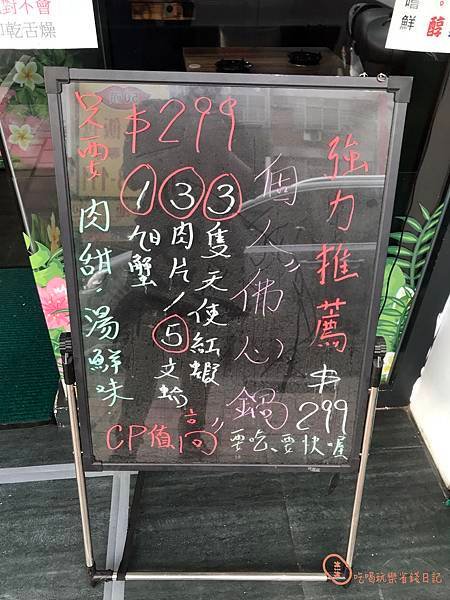 對不會
口乾舌燥
嚐
鮮
醇
強力推薦
$299
個人佛心鍋
要吃、要快喔
③隻天使紅蝦
③肉片/⑤文蛤
①旭蟹
只要$299
肉甜、湯鮮味
CP值高
吃喝玩樂省錢日記